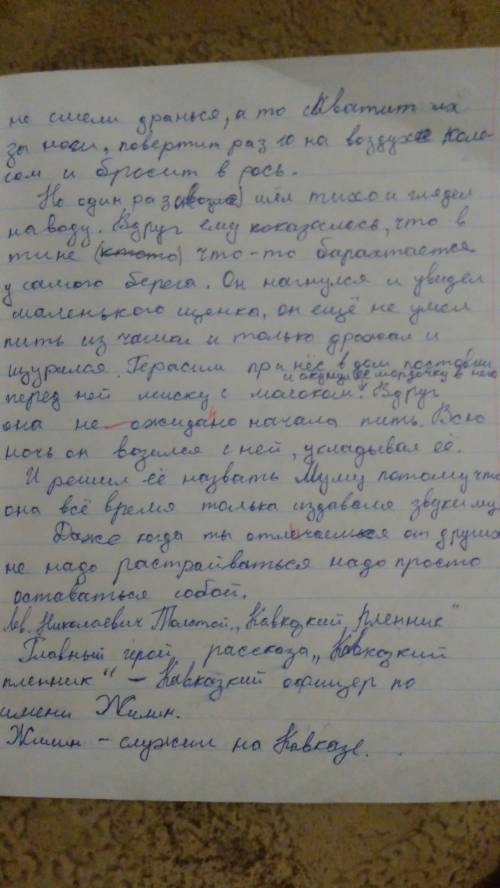 не смели дранься, а то схватит их
за ноги, повертит раз 10 на воздухе коле
сом и бросит в рось.
Но один раз (возле) шёл тихо и глядел
на воду. Вдруг ему показалось, что в
тине (ктото) что-то барахтается
у самого берега. Он нагнулся и увидел
маленького щенка, он ещё не умел
пить из чашки и только дрожал и
щурился. Герасим принёс в дом поставил
и окунул её мордочку в него
перед ней миску с молоком. Вдруг
она не ожидано начала пить. Всю
ночь он возился с ней, укладывал её.
И решил её назвать Муму потому что
она всё время только издавала звуки му
Даже когда ты отличаешься от других
не надо растраиваться надо просто
оставаться собой.
Лев. Николаевич Толстой „Кавкозкий пленник"
Главный герой рассказа „Кавкозкий
пленник" – Кавказкий офицер по
имени Жилин.
Жилин – служил на Кавказе.